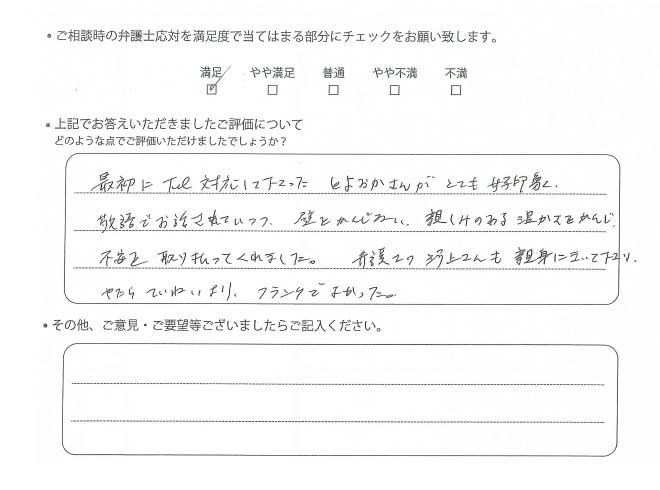 • ご相談時の弁護士応対を満足度で当てはまる部分にチェックをお願い致します。
満足 やや満足 普通 やや不満 不満
• 上記でお答えいただきましたご評価について
どのような点でご評価いただけましたでしょうか?
最初に Tel 対応して下さった とよおかさんが とても 好印象で、
敬語でお話されていつつ、壁をかんじない、親しみのある 温かさをかんじ、
不安を 取り払ってくれました。 弁護士の 河上さんも 親身にきいて下さり、
やたら ていねいより、フランクで よかった。
• その他、ご意見・ご要望等ございましたらご記入ください。